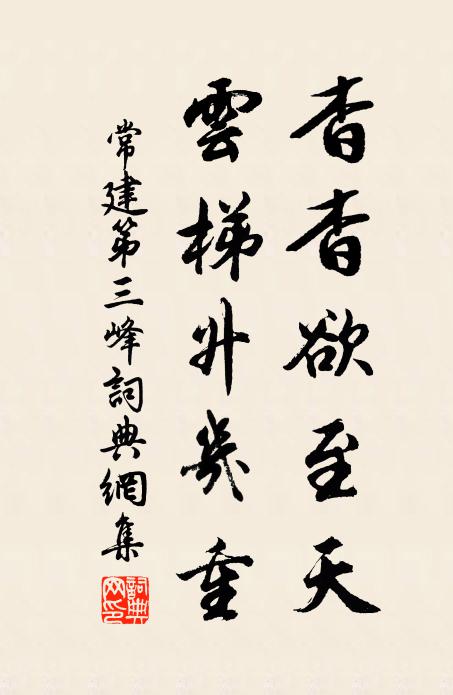 杳杳欲至天
雲梯升幾重
常建第三峰詞典網集
詞典网印